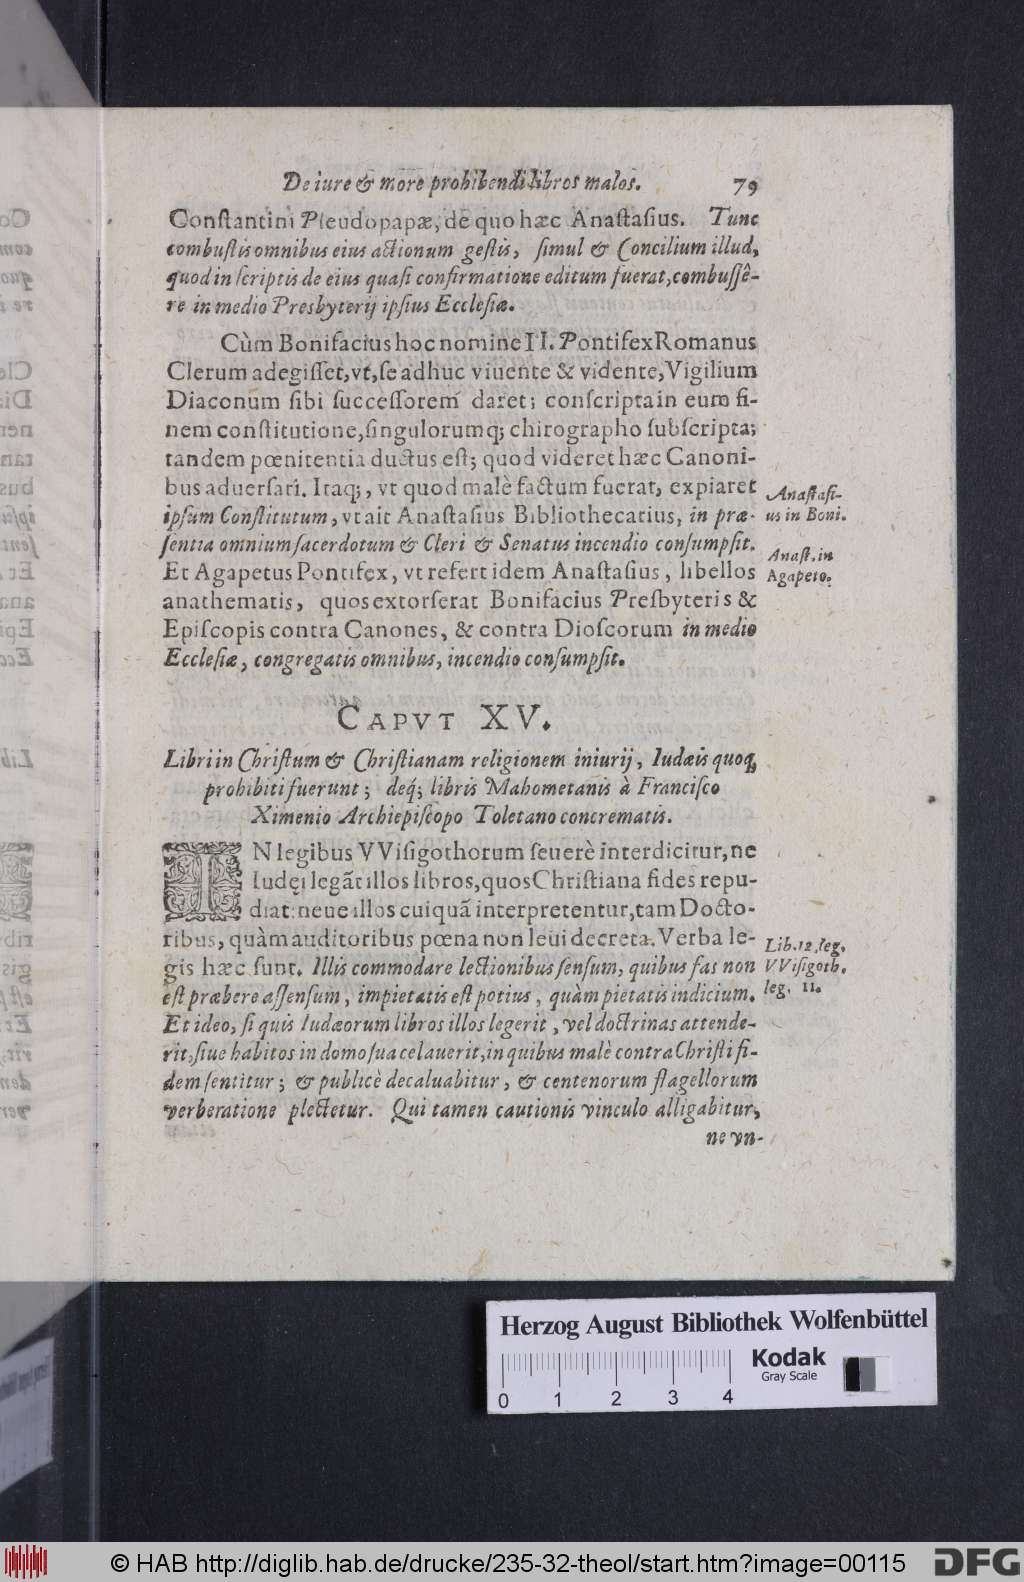 De iure & more prohibendi libros malos. 79
Conſtantini Pſeudopapæ, de quo hæc Anaſtaſius. Tunc
combuſtis omnibus eius actionum geſtis, ſimul & Concilium illud,
quod in ſcriptis de eius quaſi confirmatione editum fuerat, combuſſê-
re in medio Presbyterij ipſius Eccleſiæ.
Cùm Bonifacius hoc nomine II. Pontifex Romanus
Clerum adegiſſet, vt, ſe adhuc viuente & vidente, Vigilium
Diaconum ſibi ſucceſſorem daret; conſcripta in eum fi-
nem conſtitutione, ſingulorumq; chirographo ſubſcripta;
tandem pœnitentia ductus eſt; quod videret hæc Canoni-
bus aduerſari. Itaq;, vt quod malè factum fuerat, expiaret
ipſum Conſtitutum, vt ait Anaſtaſius Bibliothecarius, in præ-
ſentia omnium ſacerdotum & Cleri & Senatus incendio conſumpſit.
Et Agapetus Pontifex, vt refert idem Anaſtaſius, libellos
anathematis, quos extorſerat Bonifacius Preſbyteris &
Epiſcopis contra Canones, & contra Dioſcorum in medio
Eccleſiæ, congregatis omnibus, incendio conſumpſit.
Anaſtaſi-
us in Boni.
Anaſt. in
Agapeto.
CAPVT XV.
Libri in Chriſtum & Chriſtianam religionem iniurij, Iudæis quoq;
prohibiti fuerunt; deq́; libris Mahometanis à Franciſco
Ximenio Archiepiſcopo Toletano concrematis.
IN legibus VViſigothorum ſeuerè interdicitur, ne
Iudęi legãt illos libros, quos Chriſtiana fides repu-
diat: neue illos cuiquã interpretentur, tam Docto-
ribus, quàm auditoribus pœna non leui decreta. Verba le-
gis hæc ſunt. Illis commodare lectionibus ſenſum, quibus fas non
eſt præbere aſſenſum, impietatis eſt potius, quàm pietatis indicium.
Et ideo, ſi quis Iudæorum libros illos legerit, vel doctrinas attende-
rit, ſiue habitos in domo ſua celauerit, in quibus malè contra Chriſti fi-
dem ſentitur; & publicè decaluabitur, & centenorum flagellorum
verberatione plectetur. Qui tamen cautionis vinculo alligabitur,
ne vn-
Lib. 12. leg.
VViſigoth.
leg. 11.
Herzog August Bibliothek Wolfenbüttel
Kodak
Gray Scale
0 1 2 3 4
© HAB http://diglib.hab.de/drucke/235-32-theol/start.htm?image=00115
DFG